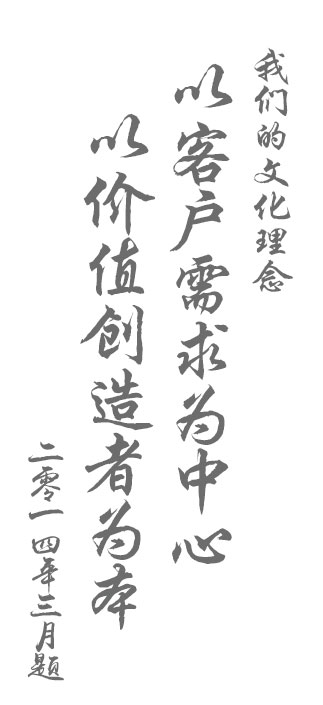 我们的文化理念
以客户需求为中心
以价值创造者为本
二零一四年三月题